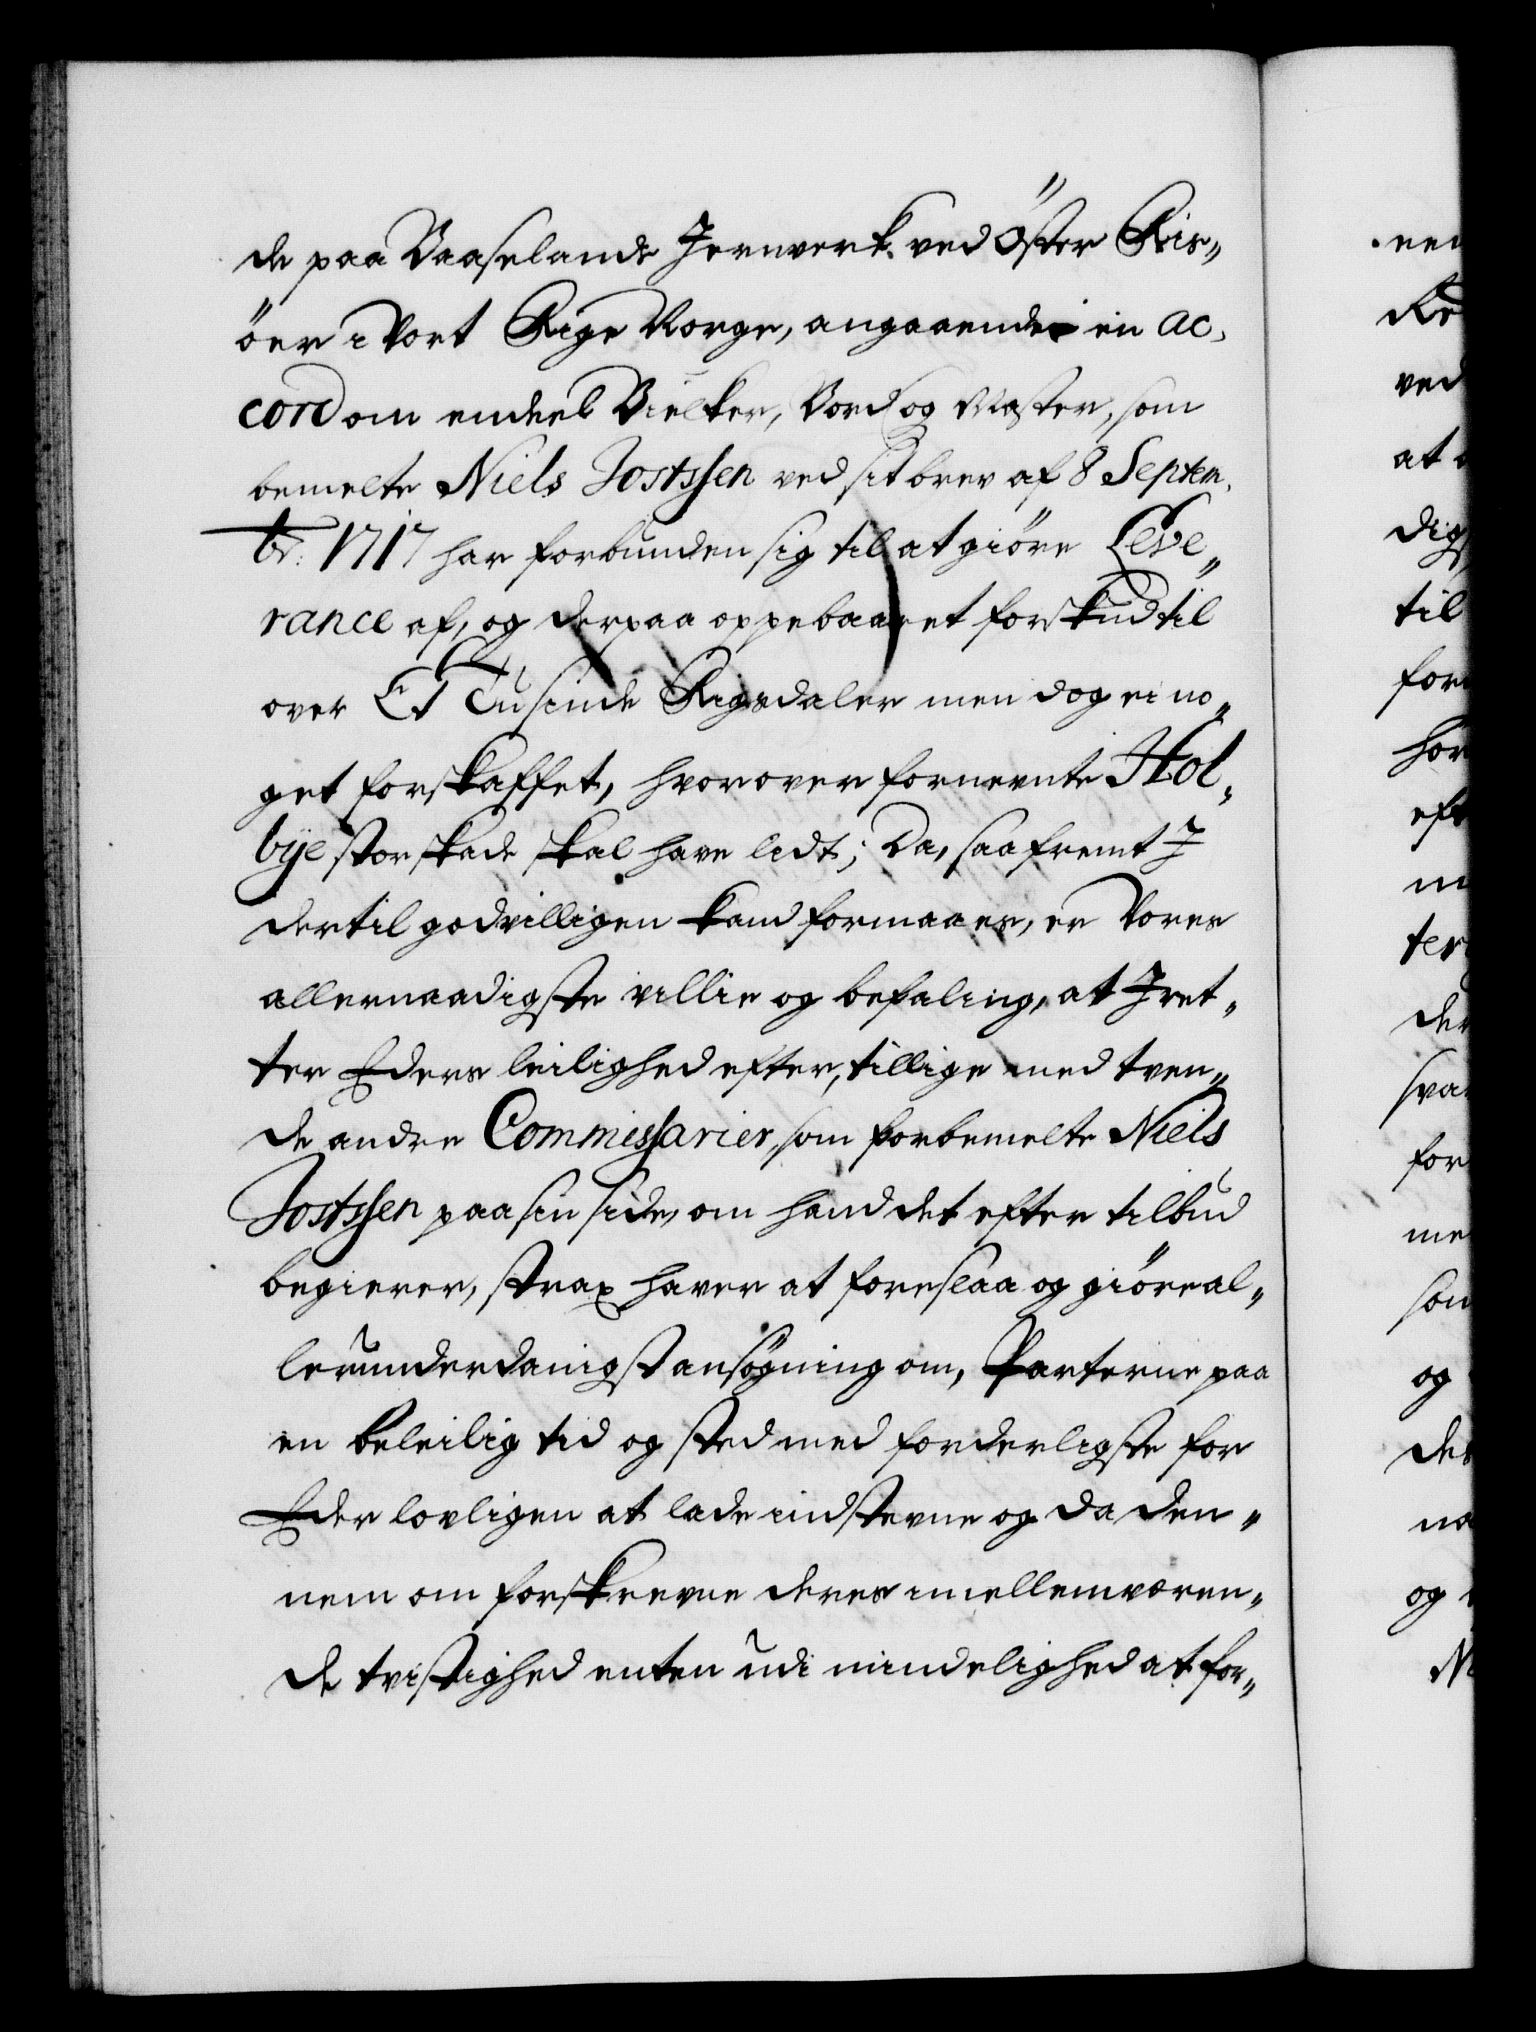 de paa Baaselands Jernverk ved Øster Riis„
öer i Vort Rige Norge, angaaende en ac„
cord om endeel Bielker, Bord og Master, som
bemelte Niels Jostssen ved sit brev af 8 Septem„
br: 1717 har forbunden sig til at giöre Leve„
rance af, og derpaa oppebaaret forskud til
over Et Tusinde Rigsdaler men dog ei no„
get forskaffet, hvorover fornevnte Hol„
bye stor skade skal have lidt; Da, saafremt I
dertil godvilligen kand formaaes, er Vores
allernaadigste villie og befaling, at I ret„
ter Eders leilighed efter, tillige med tven„
de andre Commissarier, som forbemelte Niels
Jostssen paa sin side, om hand det efter tilbud
begierer, strax haver at foreslaa og giöre al„
lerunderdanigst ansögning om, Parterne paa
en beleilig tid og sted med forderligste for
Eder lovligen at lade indstevne og da den„
nem om forskrevne deres imellemværen„
de tvistighed enten udi mindelighed at for„
een
Re
ved
at
dig
til
for
hor
eft
m
ter
der
sva
for
me
som
og
det
no
og
N